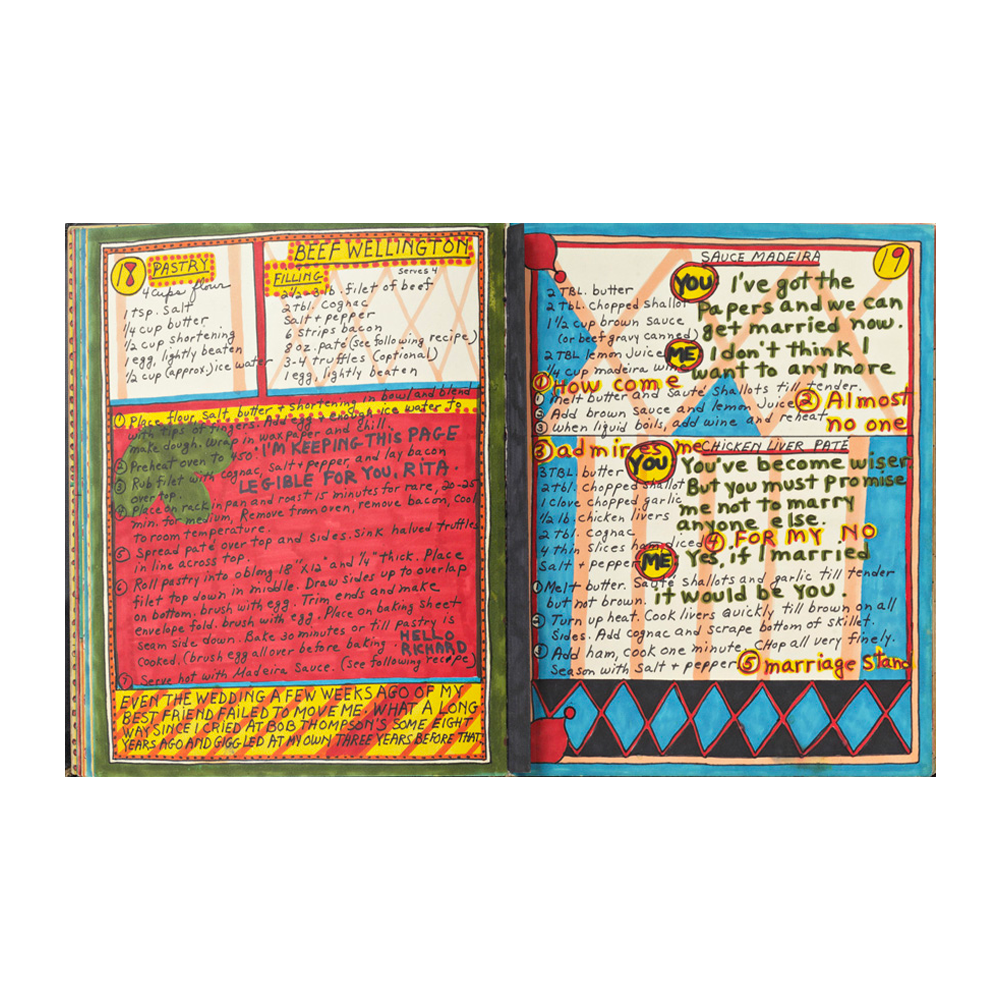 18
PASTRY
4 cups flour
1 tsp. salt
1/4 cup butter
1/2 cup shortening
1 egg, lightly beaten
1/2 cup (approx.) ice water
BEEF WELLINGTON
FILLING
serves 4
2 1/2-3 lb. filet of beef
2 tbl. Cognac
Salt + pepper
6 strips bacon
8 oz. paté (see following recipe)
3-4 truffles (optional)
1 egg, lightly beaten
① Place flour, salt, butter + shortening in bowl and blend
with tips of fingers. Add egg + enough ice water to
make dough. Wrap in waxpaper and chill.
② Preheat oven to 450°. I'M KEEPING THIS PAGE
③ Rub filet with cognac, salt + pepper, and lay bacon
over top. LEGIBLE FOR YOU, RITA.
④ Place on rack in pan and roast 15 minutes for rare, 20-25
min. for medium, Remove from oven, remove bacon, cool
to room temperature.
⑤ Spread paté over top and sides. Sink halved truffles
in line across top.
⑥ Roll pastry into oblong 18"x12" and 1/4" thick. Place
filet top down in middle. Draw sides up to overlap
on bottom. brush with egg. Trim ends and make
envelope fold. brush with egg. Place on baking sheet
seam side down. Bake 30 minutes or till pastry is
cooked. (brush egg all over before baking
HELLO
RICHARD
⑦ Serve hot with Madeira Sauce. (See following recipe)
EVEN THE WEDDING A FEW WEEKS AGO OF MY
BEST FRIEND FAILED TO MOVE ME. WHAT A LONG
WAY SINCE I CRIED AT BOB THOMPSON'S SOME EIGHT
YEARS AGO AND GIGGLED AT MY OWN THREE YEARS BEFORE THAT.
19
SAUCE MADEIRA
2 TBL. butter
2 Tbl. chopped shallot
1 1/2 cup brown sauce
(or beef gravy canned)
2 TBL lemon juice
1/4 cup madeira
YOU I've got the
Papers and we can
get married now.
ME I don't think I
want to anymore
① How come
melt butter and Sauté shallots till tender.
Add brown sauce and lemon juice
② Almost
③ When liquid boils, add wine and reheat.
no one
③ admires me
CHICKEN LIVER PATÉ
3 TBL. butter
2 tbl. chopped shallot
1 clove chopped garlic
1/2 lb. chicken livers
2 tbl. Cognac
4 thin slices ham diced
Salt + pepper
YOU You've become wiser
But you must promise
me not to marry
anyone else.
④. FOR MY NO
ME Yes, if I married
it would be you.
① Melt butter. Sauté shallots and garlic till tender
but not brown.
② Turn up heat. Cook livers quickly till brown on all
Sides. Add cognac and scrape bottom of skillet.
③ Add ham, cook one minute. CHop all very finely.
Season with salt + pepper
⑤ marriage stand